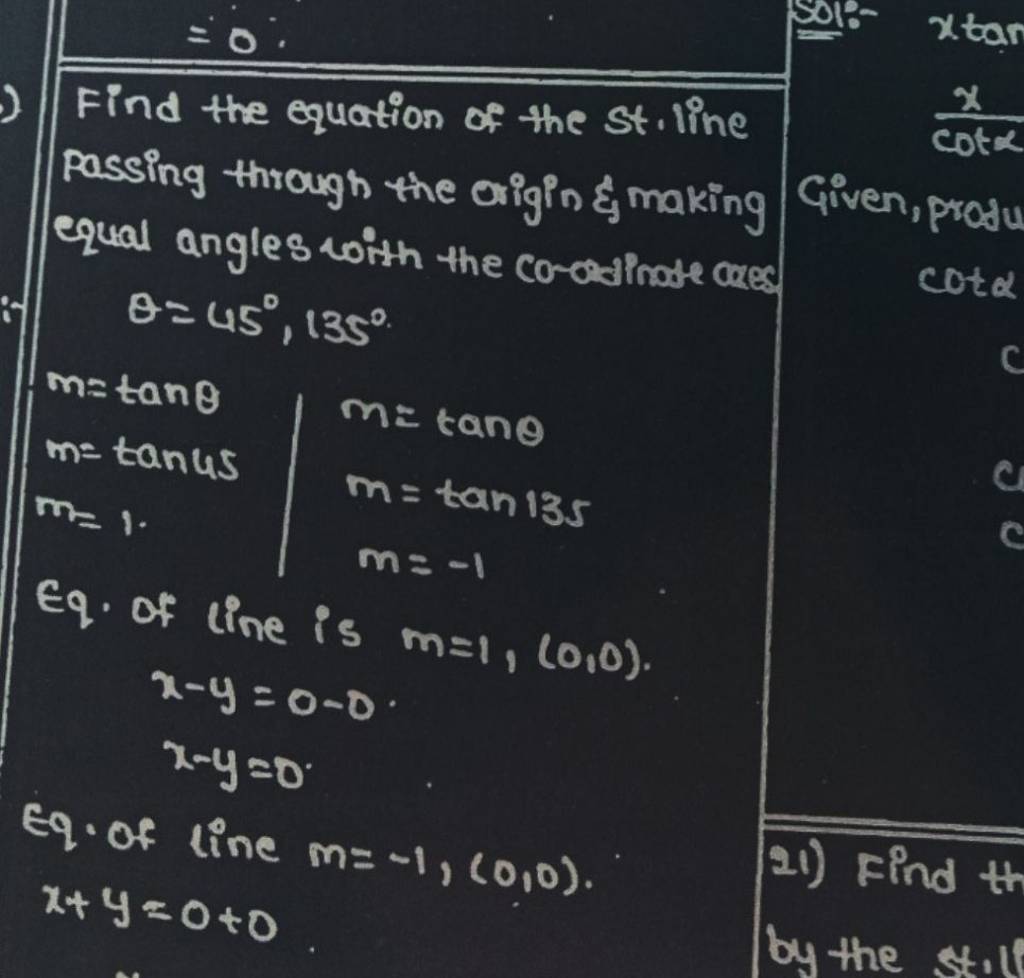 = 0.
Find the equation of the st. line
passing through the origin & making
equal angles with the co-ordinate axes
θ = 45°, 135°.
m = tanθ
m = tan45
m = 1.
m = tanθ
m = tan 135
m = -1
Eq. of line is m=1, (0,0).
x-y = 0-0.
x-y=0.
Eq. of line m= -1, (0,0).
x+y = 0+0
Sol:-
x tan
x
cotα
Given, produ
cotα
21) Find th
by the st. li